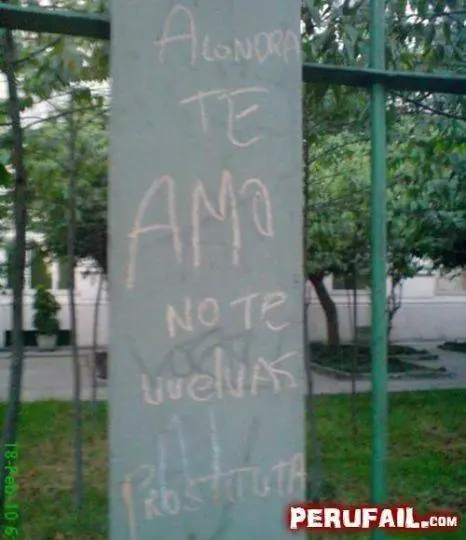 ALONDRA
TE
AMO
NO TE
VUElVAS
PROSTITUTA
18-Feb-10 6
PERUFAIL.COM